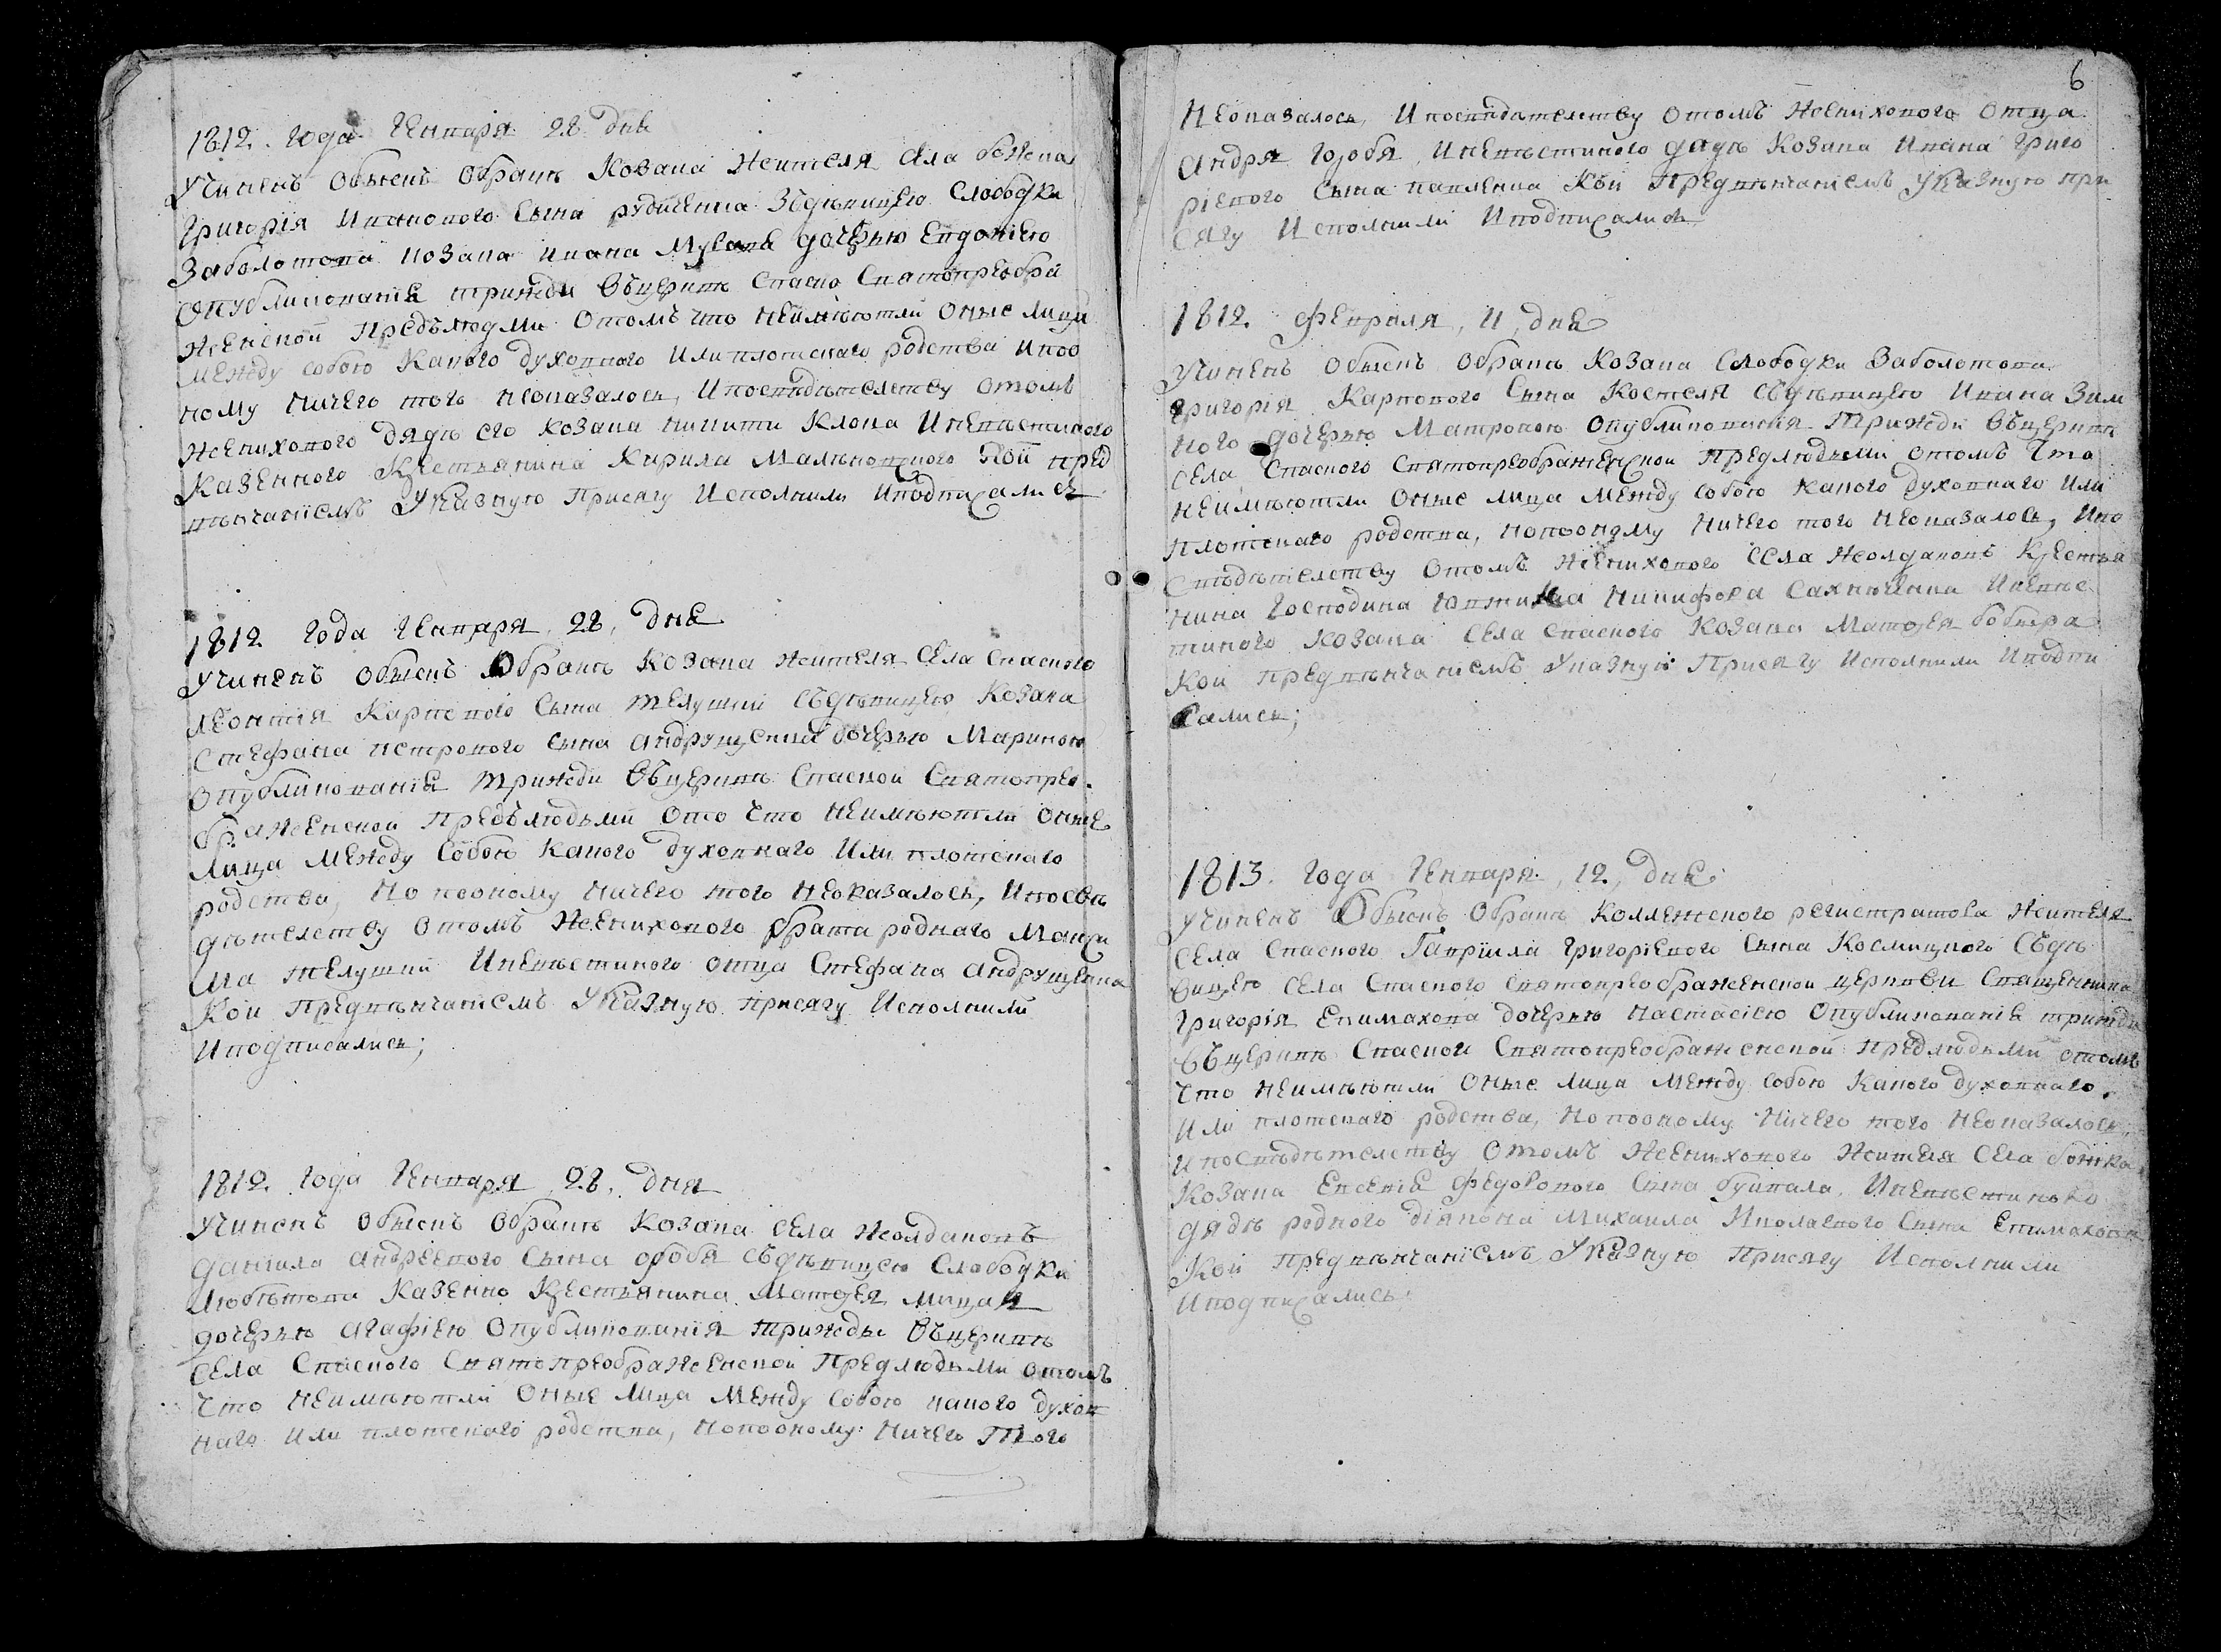 1812. года Генваря 28 дне
Учиненъ обыскъ обракѣ козака жителя села божка
Григорія Иванового сына рудченка здѣвицею слободки
Заболотова козака ивана дочерью Евдокіею
Опубликованіе трижди въцеркве спаско святопреобра
женской предълюдми отомъ что неимѣютли оные лица
между собою какого духовного или плотскаго родства ипоо
ному ничего того неоказалось, ипосвидѣтелству отомъ
женихового дядѣ его козака никити клока Иневѣстиного
казенного крестьянина Кирила Малъковского кои пред
вѣнчаніемъ Указную Присягу Исполнили Иподписались
1812 года Генваря, 28, дне
Учиненъ обыскъ обракѣ козака жителя села спаского
леонтія Карпового сына телушки съдѣвицею козака
Стефана петрового сына андрущенка дочерью Мариною
Опубликованіе трижди въцерквѣ Спаской Святопрео
браженской предълюдьми ото что неимѣютли оние
лица между собою какого духовнаго или плотскаго
родства, но пооному ничего того неоказалось, ипосви
дѣтелству отомъ женихового брата родного Макси
ма телушки Иневѣстиного отца Стефана андрущенка
Кои предвѣнчаніемъ Указную присягу Исполнили
Иподписались;
1812. года Генваря, 28, дня
Учиненъ обыскъ обракѣ козака села жолдаковъ
данила андреевого сына съдѣвицею слободки
любътова казенно крестьянина Матфея мицая
дочерью агафіею Опубликованія трижды въцерквѣ
села Спаского Святопреображенской предлюдьми отомъ
что неимѣютли оные лица между собою какого духов
наго или плотскаго родства, нопооному ничего того
6
неоказалось, Ипосвидѣтелству отомъ женихового отца
андрея Иневѣстиного дядѣ козака ивана григо
ріевого сына павленка кои предвѣнчаніемъ указную при
сягу Исполнили Иподписались
1812. февраля, 11, дне
Учиненъ обыскъ обракѣ козака слободки заболотова
григорія Карпового сына Костеля съдѣвицею ивана Зим
ного дочерью Матроною опубликованія Трижди въцерквѣ
села Спаского Святопреображенской предлюдьми отомъ что
неимѣютли оные лица между собою какого духовнаго или
плотскаго родства, нопооному ничего того неоказалось, Ипо
свѣдѣтелству отомъ женихового села жолдаковъ крестья
нина господина никифора сахнюченка Иневѣс
тиного козака села спаского козака Матфея бобыра
кои предвѣнчаніемъ Указную Присягу Исполнили Иподпи
сались;
1813. года Генваря, 12, дне
Учиненъ Обыскъ обракѣ коллежского регистратора жителя
села спаского Гавріила григоріевого сына Космицкого съдѣ
вицею села Спаского святопреображенской церкви священника
григорія Епимахова дочерью Настасіею Опубликованіе трижды
въцерквѣ Спаской Святопреображенской предлюдьми отомъ
что неимѣютли оные лица между собою какого духовнаго
или плотскаго родства, но пооному ничего того неоказалось,
ипосвѣдѣтелству отомъ женихового жителя села божка
козака Евсевія федорового сына буйвала, Иневѣстиного
дядѣ родного діякона михаила николаевого сына Епимахова
кои предвѣнчаніемъ Указную Присягу Исполнили
Иподписались.